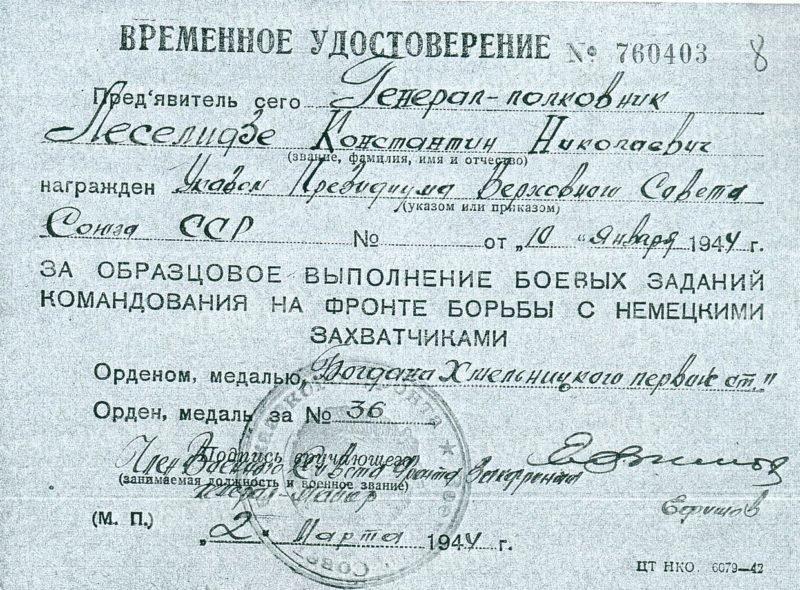 ВРЕМЕННОЕ УДОСТОВЕРЕНИЕ № 760403 8
Пред'явитель сего Генерал-полковник
Леселидзе Константин Николаевич
(звание, фамилия, имя и отчество)
награжден Указом Президиума Верховного Совета
(указом или приказом)
Союза ССР № от „10" января 1944 г.
ЗА ОБРАЗЦОВОЕ ВЫПОЛНЕНИЕ БОЕВЫХ ЗАДАНИЙ
КОМАНДОВАНИЯ НА ФРОНТЕ БОРЬБЫ С НЕМЕЦКИМИ
ЗАХВАТЧИКАМИ
Орденом, медалью „Богдана Хмельницкого первой ст."
Орден, медаль за № 36
Подпись вручающего
Член Военного Совета
(занимаемая должность и военное звание)
Генерал-Майор
Ефимов
(М. П.) „2" Марта 1944 г.
ЦТ НКО. 6079—42